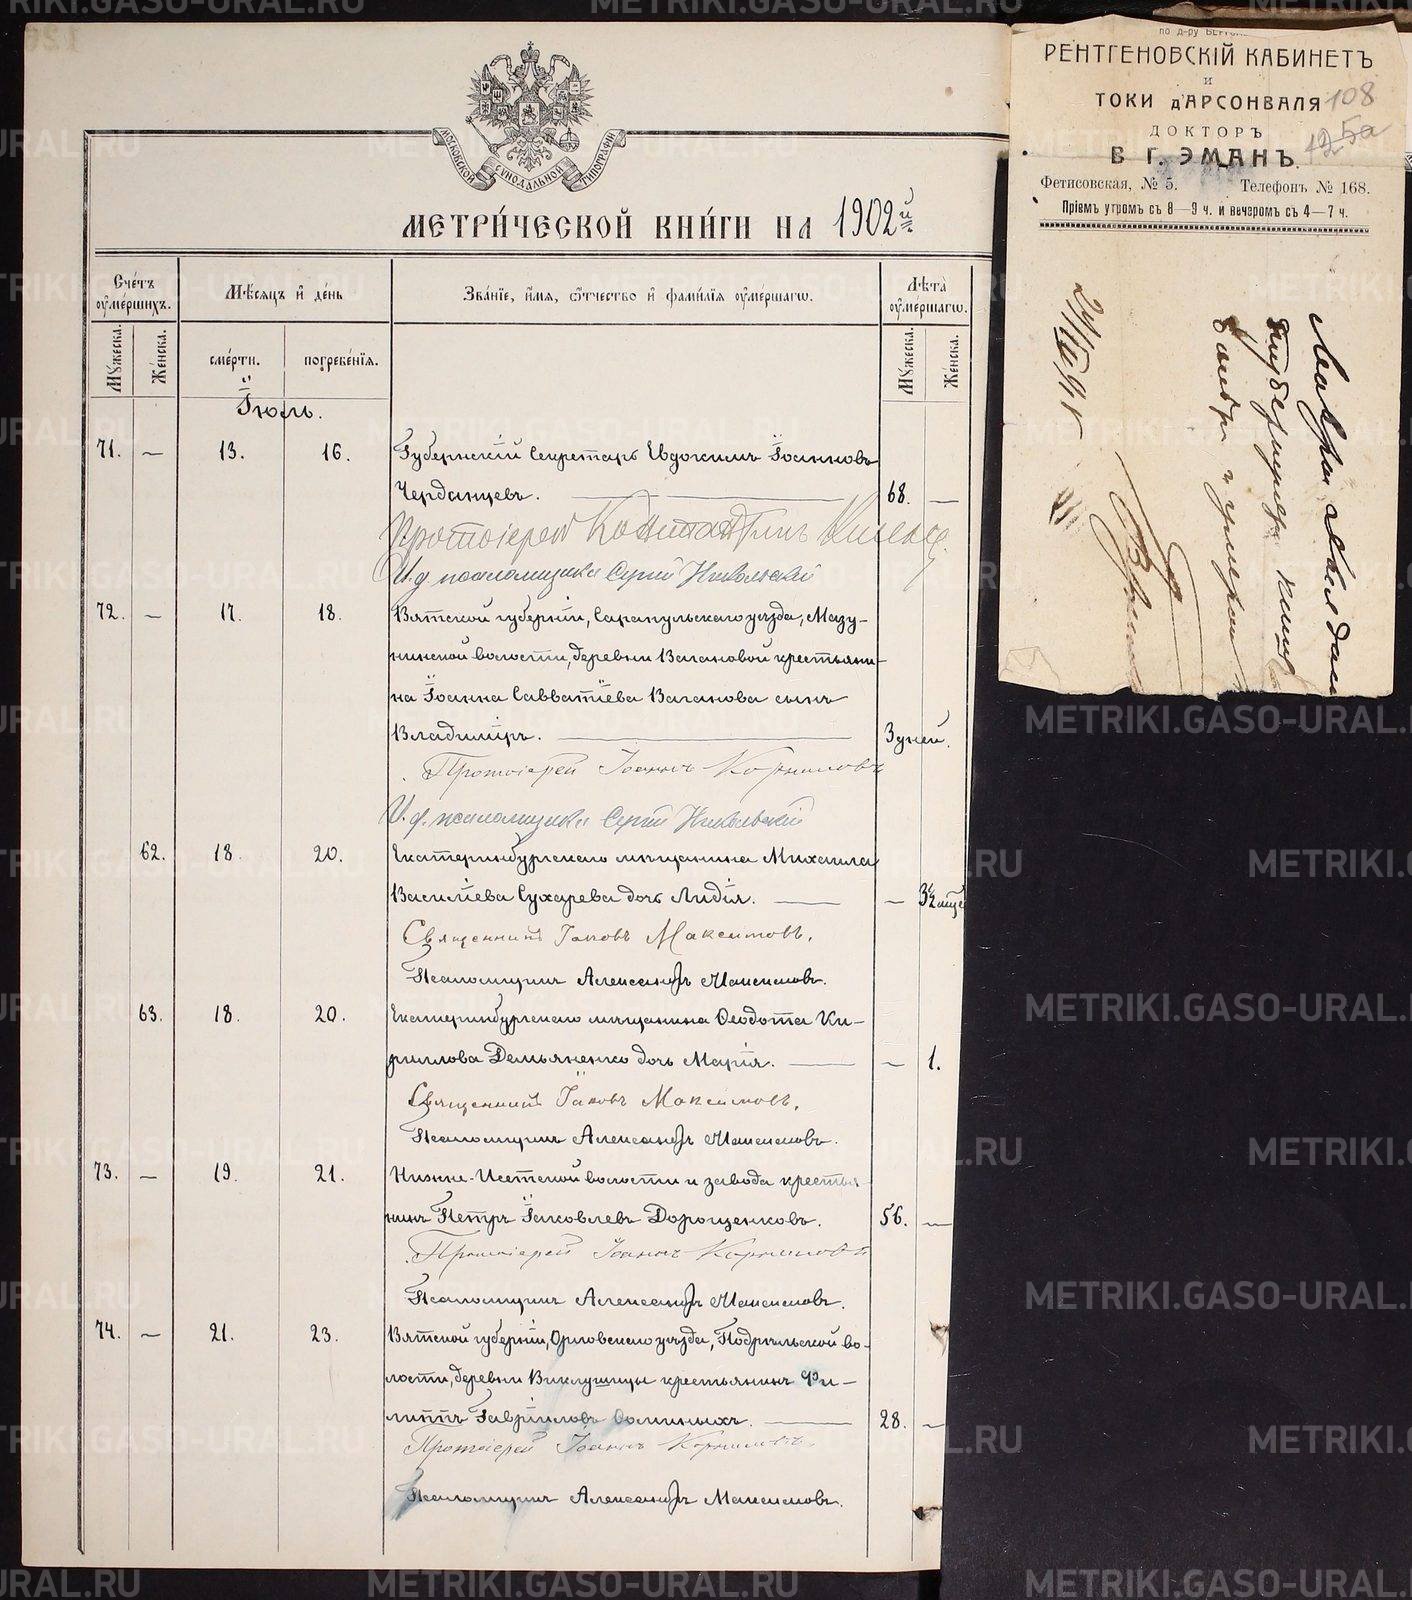 МОСКОВСКОЙ СѴНОДАЛЬНОЙ ТИПОГРАФІИ
МЕТРИ́ЧЕСКОЙ КНИ́ГИ НА 1902й
Сче́тъ оу҆ме́ршихъ.
Мѣ́сяцъ и҆ де́нь
Зва́нїе, и҆́мя, ѻ҆́тчество и҆ фами́лїя оу҆ме́ршагѡ.
Лѣ́та оу҆ме́ршагѡ.
Му́жеска.
Же́нска.
сме́рти.
погребе́нїя.
Му́жеска.
Же́нска.
Іюль.
71. — 13. 16. Губернскій Секретарь Евдокимъ Іоанновъ
Черданцевъ. 68. —
Протоіерей Константинъ
И.д. псаломщика Сергій Никольскій
72. — 17. 18. Вятской губерніи, Сарапульскаго уѣзда, Мазу-
нинской волости, деревни Вагановой крестьяни-
на Іоанна Савватіева Ваганова сынъ
Владиміръ. 3 дней.
Протоіерей Іоаннъ Корниловъ
И.д. псаломщика Сергій Никольскій
62. 18. 20. Екатеринбургскаго мѣщанина Михаила
Василіева Сухарева дочь Лидія. —
Священникъ Іаковъ Максимовъ,
Псаломщикъ Александръ Максимовъ.
63. 18. 20. Екатеринбургскаго мѣщанина Ѳеодота Ки-
риллова Демьяненко дочь Марія. — 1.
Священникъ Іаковъ Максимовъ,
Псаломщикъ Александръ Максимовъ.
73. — 19. 21. Нижне-Исетской волости и завода крестья-
нинъ Петръ Іаковлевъ Дорощенковъ. 56. —
Протоіерей Іоаннъ Корниловъ
Псаломщикъ Александръ Максимовъ.
74. — 21. 23. Вятской губерніи, Орловскаго уѣзда, Подрѣльской во-
лости, деревни Виклушицы крестьянинъ Фи-
липпъ Гавріиловъ Ѳоминыхъ. 28. —
Протоіерей Іоаннъ Корниловъ.
Псаломщикъ Александръ Максимовъ.
РЕНТГЕНОВСКІЙ КАБИНЕТЪ
И
ТОКИ дАРСОНВАЛЯ 108
ДОКТОРЪ 125а
В Г. ЭМАНЪ.
Фетисовская, № 5. Телефонъ № 168.
Пріемъ утромъ съ 8—9 ч. и вечеромъ съ 4—7 ч.
METRIKI.GASO-URAL.RU